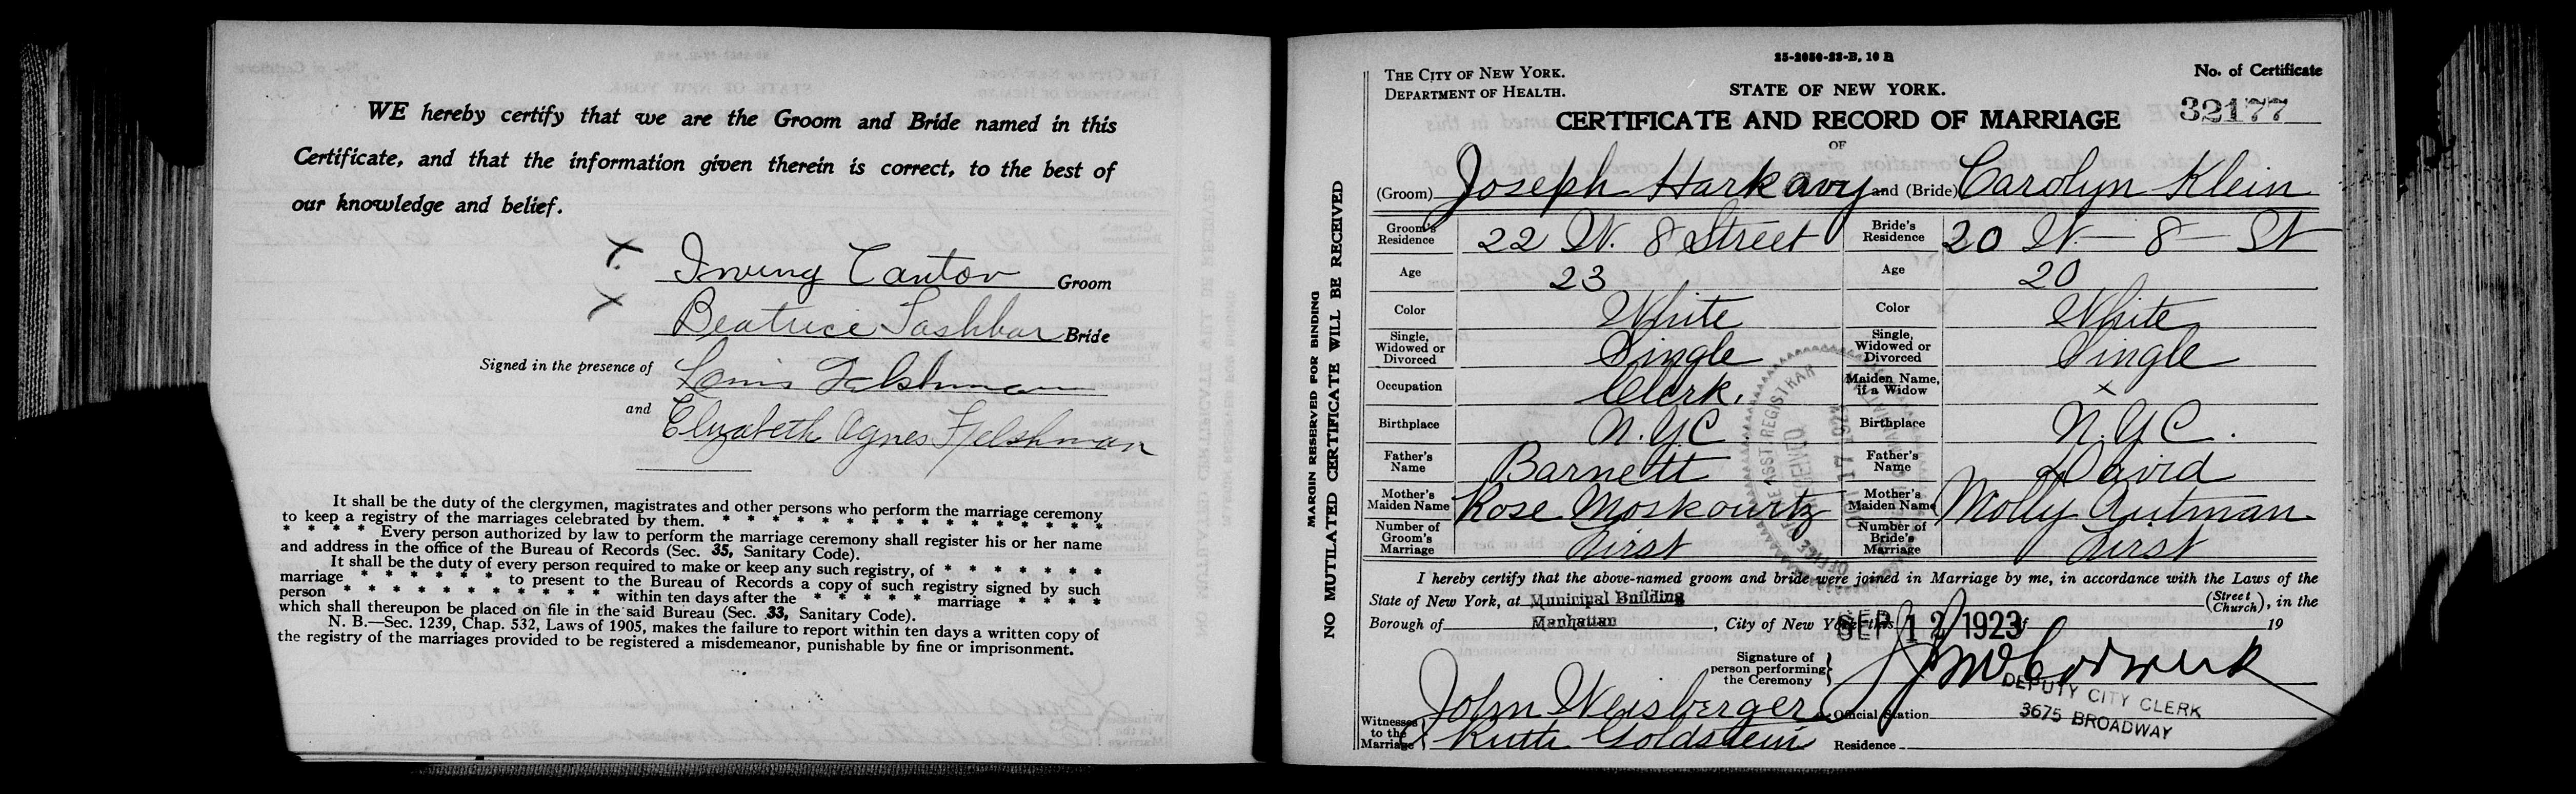 WE hereby certify that we are the Groom and Bride named in this
Certificate, and that the information given therein is correct, to the best of
our knowledge and belief.
X Irving Cantor Groom
X Beatrice Bride
Signed in the presence of Louis Felshman
and Elizabeth Agnes Felshman
It shall be the duty of the clergymen, magistrates and other persons who perform the marriage ceremony
to keep a registry of the marriages celebrated by them. * * * * * * * * * * * * * * *
* * * * Every person authorized by law to perform the marriage ceremony shall register his or her name
and address in the office of the Bureau of Records (Sec. 35, Sanitary Code).
It shall be the duty of every person required to make or keep any such registry, of * * * * * * *
marriage * * * * * * to present to the Bureau of Records a copy of such registry signed by such
person * * * * * * * * * * * within ten days after the * * * * * marriage * * * *
which shall thereupon be placed on file in the said Bureau (Sec. 33, Sanitary Code).
N. B.—Sec. 1239, Chap. 532, Laws of 1905, makes the failure to report within ten days a written copy of
the registry of the marriages provided to be registered a misdemeanor, punishable by fine or imprisonment.
MARGIN RESERVED FOR BINDING
NO MUTILATED CERTIFICATE WILL BE RECEIVED
25-2050-23-B, 10 B
THE CITY OF NEW YORK.
DEPARTMENT OF HEALTH.
STATE OF NEW YORK.
No. of Certificate
32177
CERTIFICATE AND RECORD OF MARRIAGE
OF
(Groom) Joseph Harkavy and (Bride) Carolyn Klein
Groom's Residence 22 W. 8 Street Bride's Residence 20 W - 8 - St
Age 23 Age 20
Color White Color White
Single, Widowed or Divorced Single Single, Widowed or Divorced Single
Occupation Clerk. Maiden Name, if a Widow x
Birthplace N.Y.C Birthplace N.Y.C.
Father's Name Barnett Father's Name David
Mother's Maiden Name Rose Moskowitz Mother's Maiden Name Molly Autman
Number of Groom's Marriage First Number of Bride's Marriage First
OFFICE OF THE ASST REGISTRAR
RECEIVED
OCT 17 1923
I hereby certify that the above-named groom and bride were joined in Marriage by me, in accordance with the Laws of the
State of New York, at Municipal Building (Street Church), in the
Borough of Manhattan, City of New York, this SEP 12 1923 of 19
Signature of person performing the Ceremony
DEPUTY CITY CLERK
3675 BROADWAY
Witnesses to the Marriage John Weisberger Official Station
Ruth Goldstein Residence